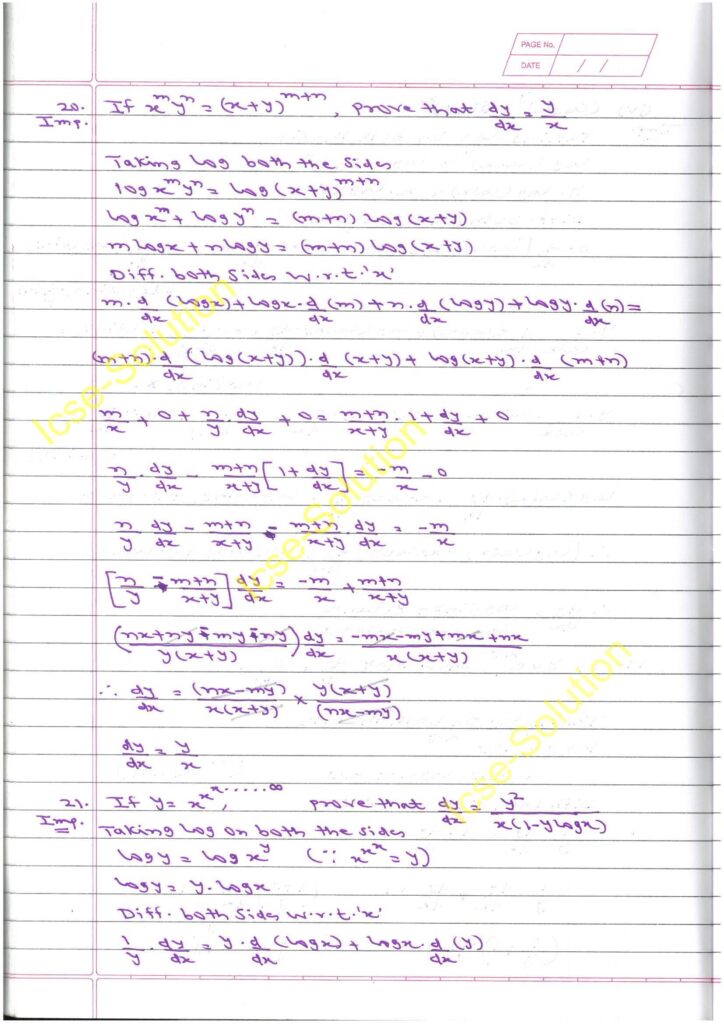 PAGE No.
DATE / /
20. If x^m y^n = (x+y)^{m+n}, prove that dy/dx = y/x
Imp.
Taking log both the sides
log x^m y^n = log (x+y)^{m+n}
log x^m + log y^n = (m+n) log (x+y)
m log x + n log y = (m+n) log (x+y)
Diff. both sides w.r.t. 'x'
m. d/dx (log x) + log x . d/dx (m) + n. d/dx (log y) + log y . d/dx (n) =
(m+n). d/dx (log (x+y)). d/dx (x+y) + log (x+y) . d/dx (m+n)
m/x + 0 + n/y . dy/dx + 0 = m+n/x+y . 1 + dy/dx + 0
n/y . dy/dx - m+n/x+y [1 + dy/dx] = -m/x - 0
n/y . dy/dx - m+n/x+y - m+n/x+y . dy/dx = -m/x
[n/y - m+n/x+y] dy/dx = -m/x + m+n/x+y
(nx+ny-my-ny / y(x+y)) dy/dx = -mx-my+mx+nx / x(x+y)
∴ dy/dx = (nx-my)/x(x+y) × y(x+y)/(nx-my)
dy/dx = y/x
21. If y = x^{x^{x.....∞}}, prove that dy/dx = y²/x(1-y log x)
Imp.
Taking log on both the sides
log y = log x^y (∵ x^{x^x} = y)
log y = y. log x
Diff. both sides w.r.t. 'x'
1/y . dy/dx = y. d/dx (log x) + log x . d/dx (y)
Icse-Solution
Icse-Solution
Icse-Solution